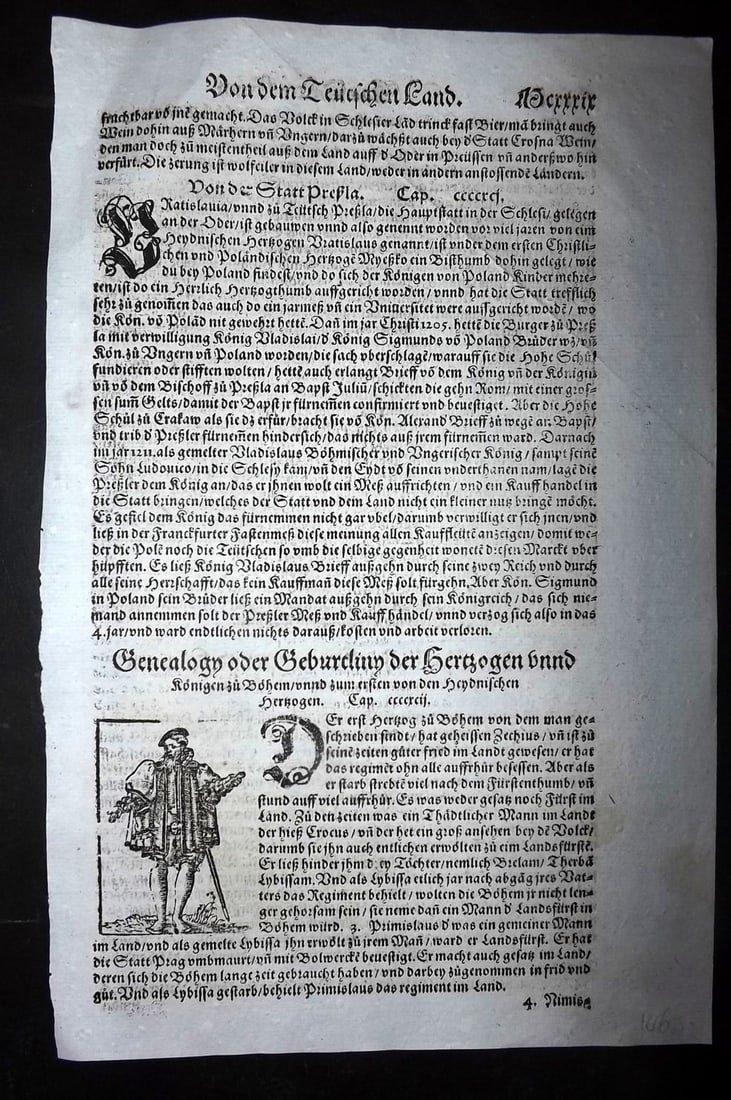 Von dem Teutschen Land. Mcxxxix
fruchtbar võ jnẽ gemacht. Das Volck in Schlesier Lãd trinck fast Bier/mã bringt auch
Wein dohin auß Märhern vñ Vngern/darzů wächßt auch bey d̕ Statt Crosna Wein/
den man doch zů meistentheil auß dem Land auff d̕ Oder in Preüssen vñ anderßwo hin
verfürt. Die zerung ist wolfeiler in diesem Land/weder in andern anstossendẽ Ländern.
Von der Statt Preßla. Cap. ccccxcj.
VRatislauia/vnnd zů Teütsch Preßla/die Hauptstatt in der Schlesi/gelegen
an der Oder/ist gebauwen vnnd also genennt worden vor viel jaren von eim
Heydnischen Hertzogen Vratislaus genannt/ist vnder dem ersten Christli-
chen vnd Poländischen Hertzogẽ Myeßko ein Bisthumb dohin gelegt/wie
du bey Poland findest/vnd do sich der Königen von Poland Kinder mehre-
ten/ist do ein Herrlich Hertzogthumb auffgericht worden/vnnd hat die Statt trefflich
sehr zů genom̃en das auch do ein jarmeß vñ ein Vniuersitet were auffgericht wordẽ/wo
die Kön. võ Polãd nit gewehrt hettẽ. Dañ im jar Christi 1205. hettẽ die Burger zů Preß
la mit verwilligung König Vladislai/d̕ König Sigmunds võ Poland Brůder wz/vñ
Kön. zů Vngern vñ Poland worden/die sach vberschlagẽ/warauff sie die Hohe Schůl
fundieren oder stifften wolten/hettẽ auch erlangt Brieff võ dem König vñ der Königin
vñ võ dem Bischoff zů Preßla an Bapst Juliũ/schickten die gehn Rom/mit einer gros-
sen sum̃ Gelts/damit der Bapst jr fürnem̃en confirmiert vnd beuestiget. Aber die Hohe
Schůl zů Crakaw als sie dz erfůr/bracht sie võ Kön. Alexand̕ Brieff zů wegẽ an Bapst/
vnd trib d̕ Preßler fürnem̃en hindersich/das nichts auß jrem fürnem̃en ward. Darnach
im jar 1211. als gemelter Vladislaus Böhmischer vnd Vngerischer König/sampt seinẽ
Sohn Ludouico/in die Schlesy kam/vñ den Eydt võ seinen vnderthanen nam/lagẽ die
Preßler dem König an/das er jhnen wolt ein Meß auffrichten/vnd ein Kauff handel in
die Statt bringen/welches der Statt vnd dem Land nicht ein kleiner nutz bringẽ möcht.
Es gefiel dem König das fürnemmen nicht gar vbel/darumb verwilligt er sich jnen/vnd
ließ in der Franckfurter Fastenmeß diese meinung allen Kauffleütẽ anzeigen/domit we-
der die Polẽ noch die Teütschen so vmb die selbige gegenheit wonetẽ diesen Marckt vber
hüpfften. Es ließ König Vladislaus Brieff außgehn durch seine zwey Reich vnd durch
alle seine Herrschafft/das kein Kauffmañ diese Meß solt fürgehn. Aber Kön. Sigmund
in Poland sein Brůder ließ ein Mandat außgehn durch sein Königreich/das sich nie-
mand annemmen solt der Preßler Meß vnd Kauff händel/vnnd verzog sich also in das
4. jar/vnd ward endtlichen nichts darauß/kosten vnd arbeit verloren.
Genealogy oder Geburtliny der Hertzogen vnnd
Königen zů Böhem/vnnd zum ersten von den Heydnischen
Hertzogen. Cap. ccccxcij.
DEr erst Hertzog zů Böhem von dem man ge-
schrieben findt/hat geheissen Zechius/vñ ist zů
seinẽ zeiten gůter fried im Landt gewesen/er hat
das regimẽt ohn alle auffrhůr besessen. Aber als
er starb strebtẽ viel nach dem Fürstenthumb/vñ
stund auff viel auffrhůr. Es was weder gesatz noch Fürst im
Land. Zů den zeiten was ein Thädtlicher Mann im Landt
der hieß Crocus/vñ der het ein groß ansehen bey dẽ Volck/
darumb sie jhn auch entlichen erwölten zů eim Landsfürstẽ.
Er ließ hinder jhm drey Töchter/nemlich Brelam/Therbã
Lybissam. Vnd als Lybissa etlich jar nach abgãg jres Vat-
ters das Regiment behielt/wolten die Böhem jr nicht len-
ger gehorsam sein/sie neme dañ ein Mann d̕ Landsfürst in
Böhem würd. 3. Primislaus d̕ was ein gemeiner Mann
im Land/vnd als gemelte Lybissa jhn erwölt zů jrem Mañ/ward er Landsfürst. Er hat
die Statt Prag vmbmaurt/vñ mit Bolwerckẽ beuestigt. Er macht auch gesatz im Land/
deren sich die Böhem lange zeit gebraucht haben/vnd darbey zůgenommen in frid vnd
gůt. Vnd als Lybissa gestarb/behielt Primislaus das regiment im Land.
4. Nimis-
146